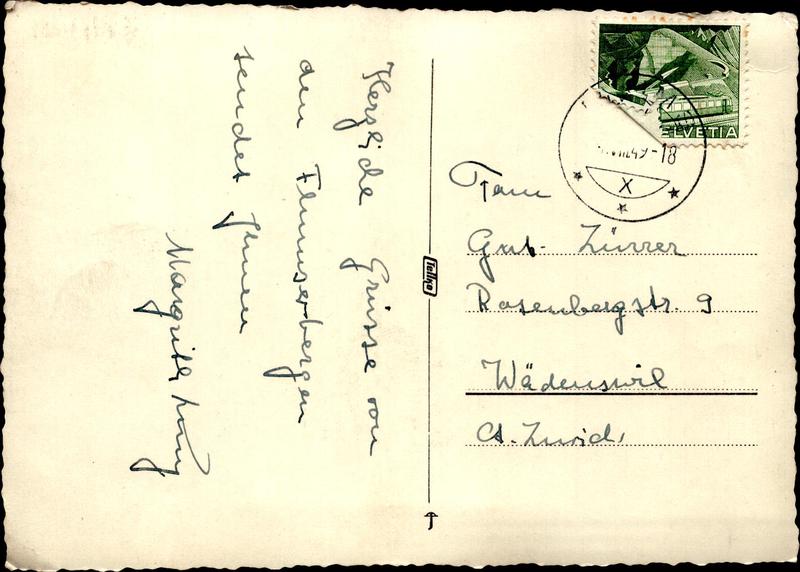 Herzliche Grüsse von
den Flumserbergen
sendet Ihnen
Margrith
HELVETIA
VIII.49-18
X
Frau
Gut-Zürrer
Rosenbergstr. 9
Wädenswil
Ct. Zürich